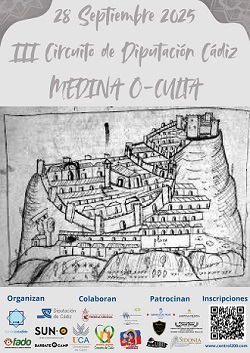 28 Septiembre 2025
III Circuito de Diputación Cádiz
MEDINA O-CULTA
Organizan
Colaboran
Patrocinan
Inscripciones
Diputación
de Cádiz
SUN-O
fado
BARBATE O CAMP
UCA
SIDONIA
www.control200.com